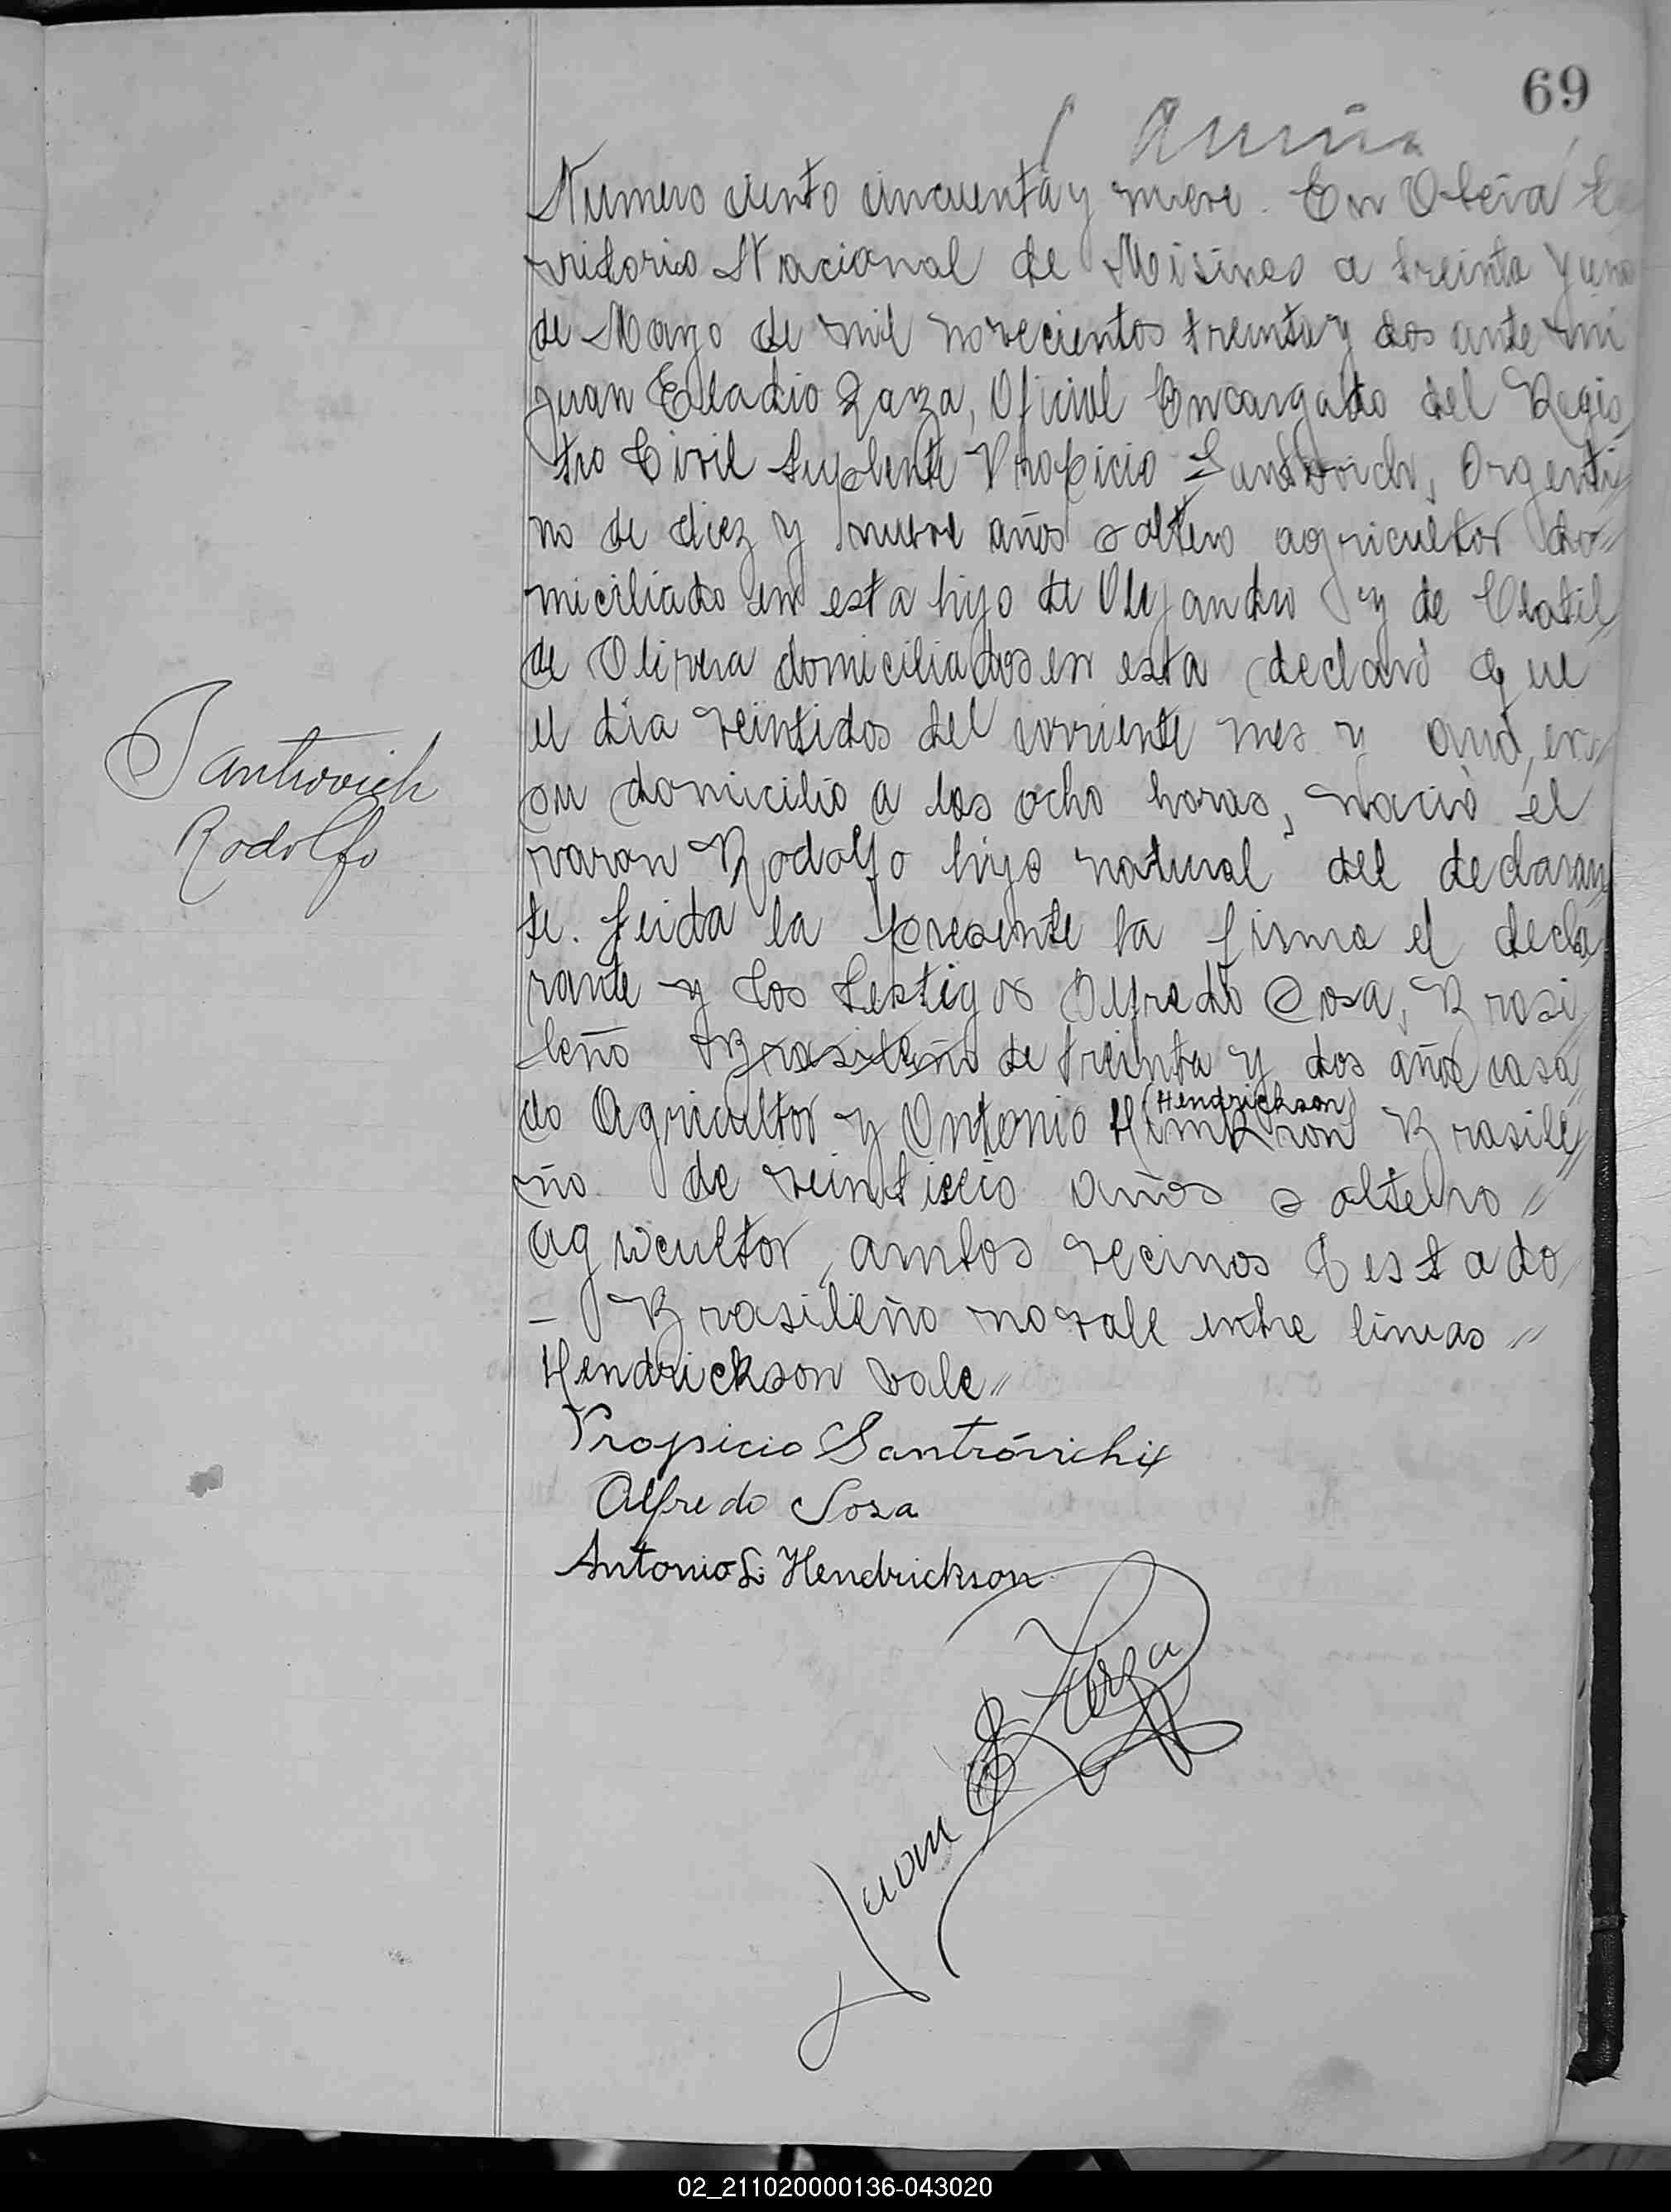 69
Numero ciento cincuenta y nueve. En Oberá te
rritorio Nacional de Misiones a treinta y uno
de Mayo de mil novecientos treinta y dos ante mi
Juan Eladio Zarza, Oficial Encargado del Regis
tro Civil Suplente Propicio Santrovich, Argenti
no de diez y nueve años soltero agricultor do
miciliado en esta hijo de Alejandro y de Clotil
de Olivera domiciliados en esta declaró que
el dia veintidos del corriente mes y año, en
su domicilio a las ocho horas, nació el
Santrovich
Rodolfo
varon Rodolfo hijo natural del declaran
te. Leida la presente la firma el decla
rante y los testigos Alfredo Sosa, Brasi
leño Brasileño de treinta y dos años casa
(Hendrickson)
do Agricultor y Antonio Brasile
ño de veintiseis años soltero
agricultor, ambos vecinos Testado
- Brasileño no vale entre lineas
Hendrickson vale
Propicio Santróvich
Alfredo Sosa
Antonio L. Hendrickson
Juan E Zarza
02_211020000136-043020